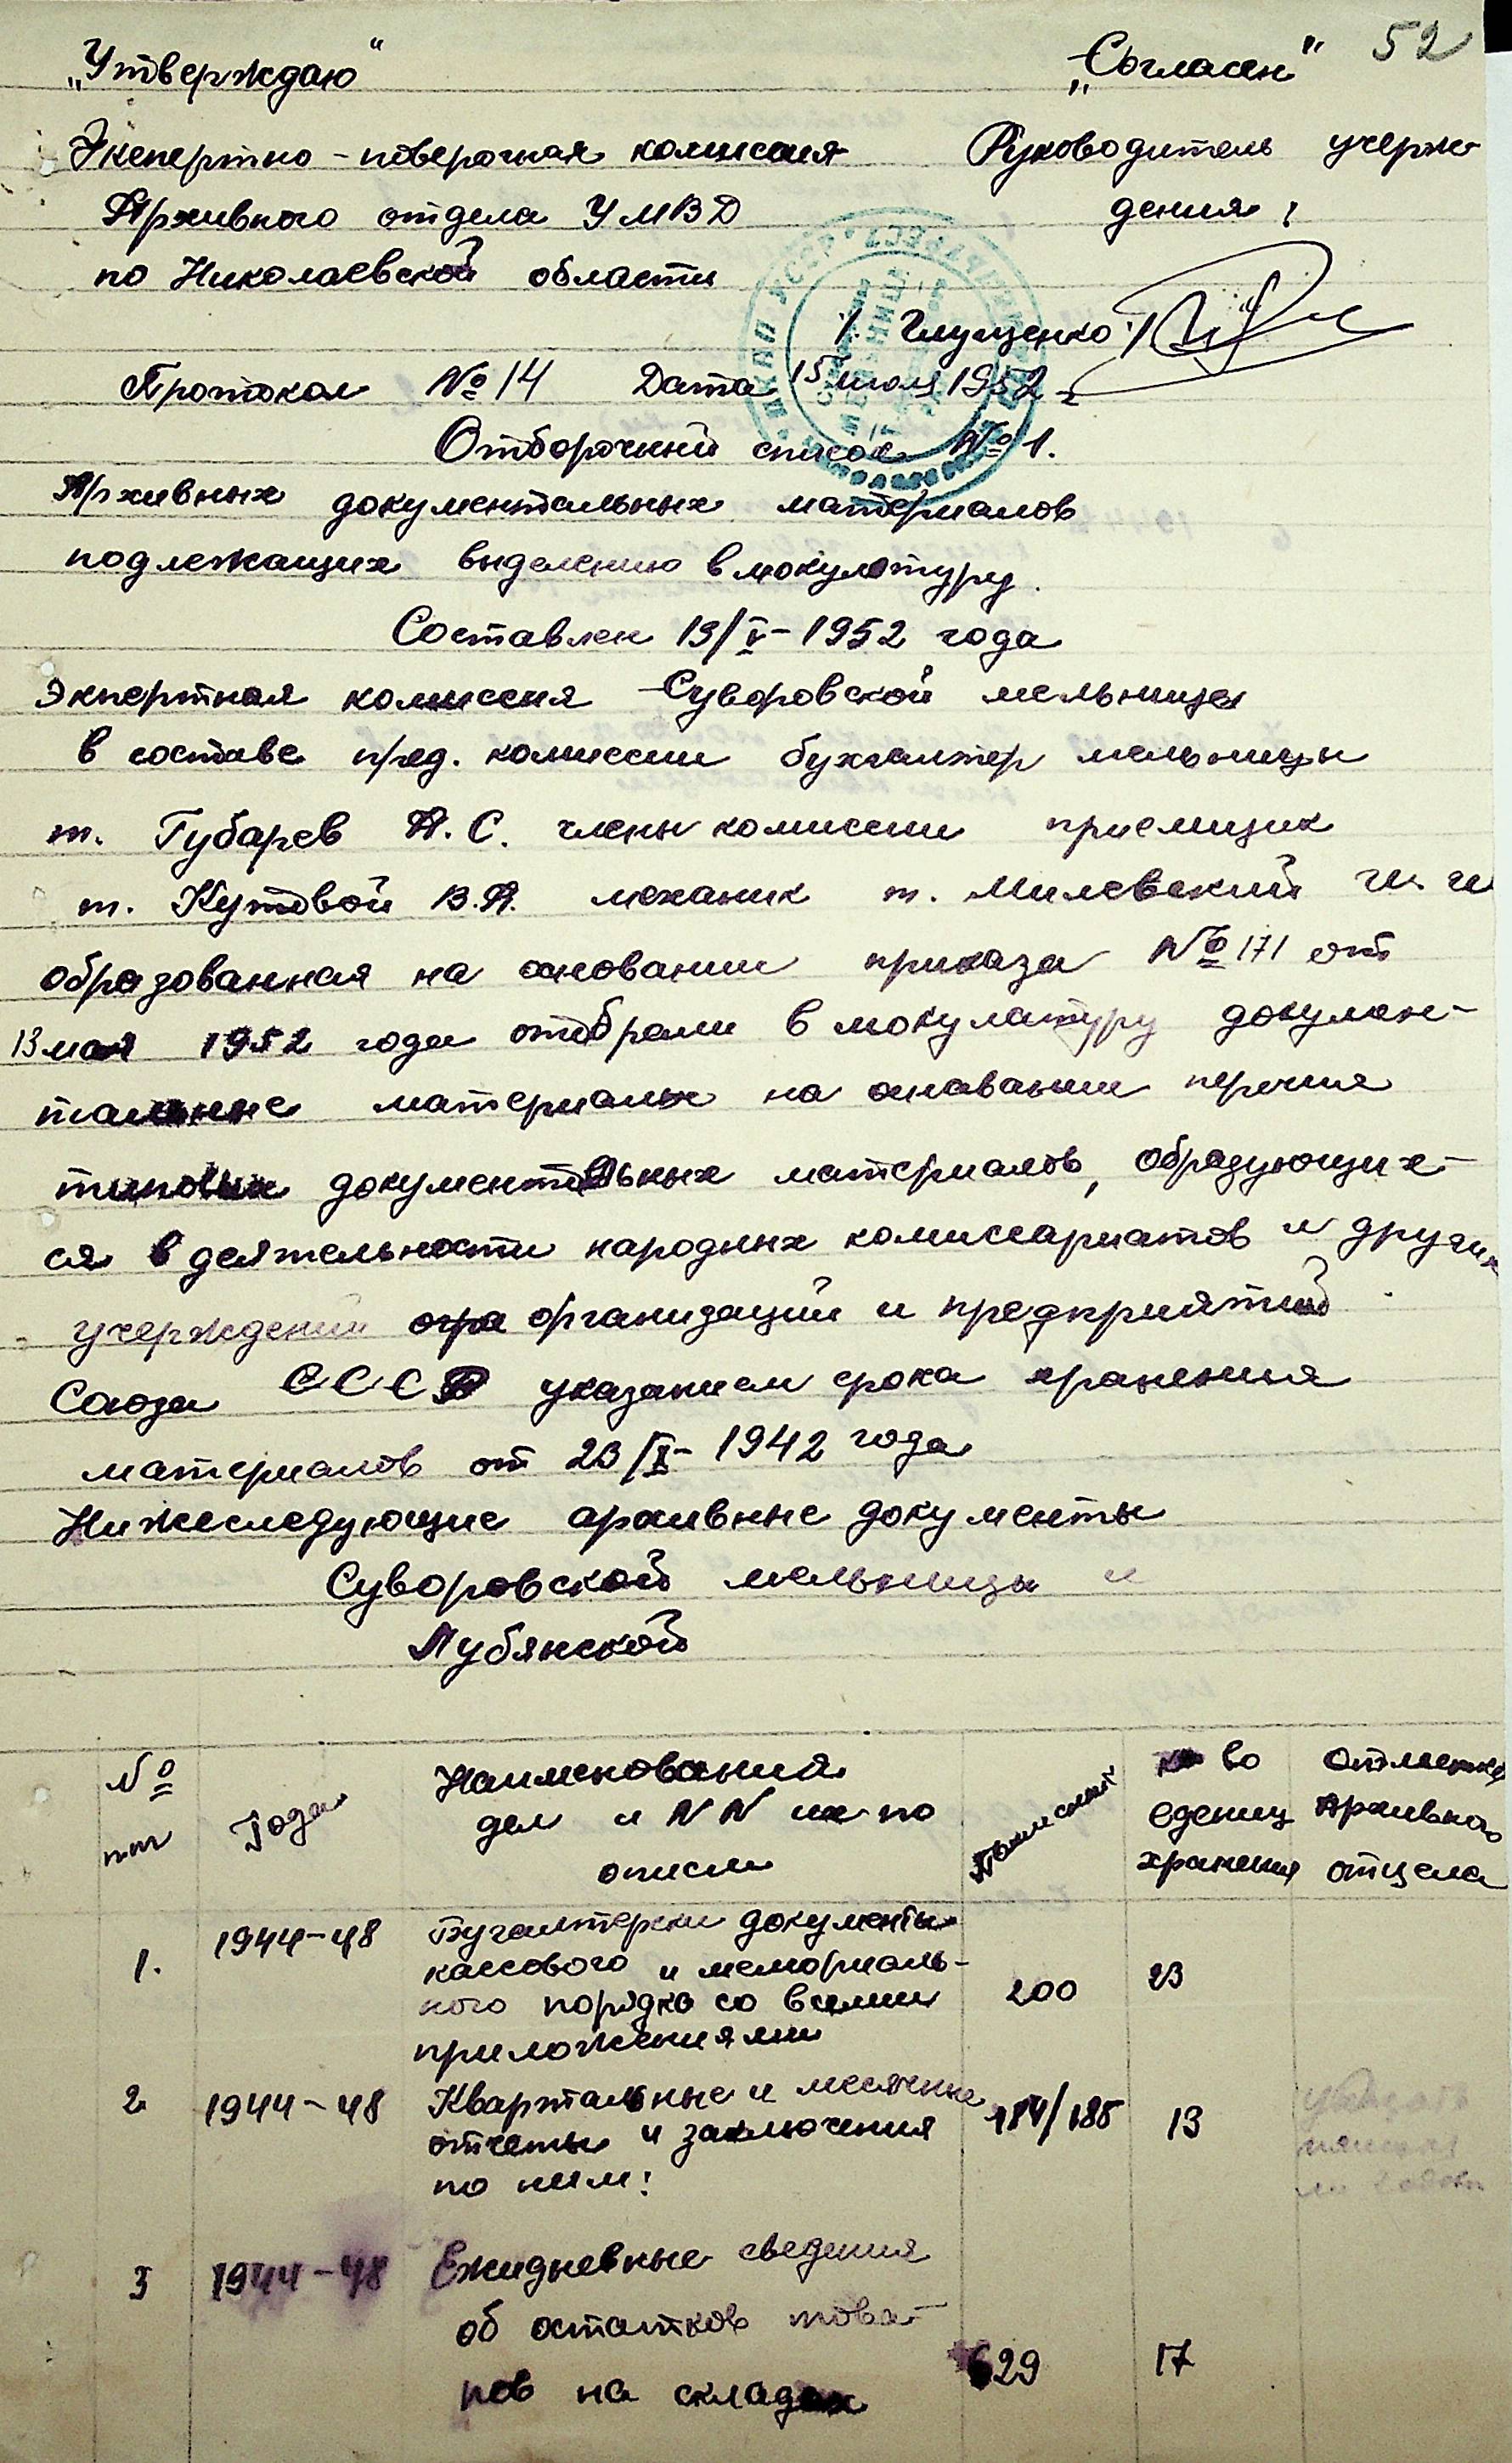 52
„Утверждаю“
„Согласен“
Экспертно-поверочная комиссия
Руководитель учереж-
Архивного отдела УМВД
дения:
по Николаевской области
/. Глущенко /
Протокол № 14 Дата 15 июля 1952
Отборочный список № 1.
Архивных документальных материалов
подлежащих выделению в мокулотуру.
Составлен 19/V-1952 года
Экпертная комиссия Суворовской мельницы
в составе пред. комиссии бухгалтер мельницы
т. Губарев А. С. члены комиссии приемщик
т. Кутовой В. А. механик т. Милевский И. И
образованная на основании приказа № 171 от
13 мая 1952 года отобрали в мокулатуру докумен-
тальные материалы на онавании перечня
типовых документальных материалов, образующих-
ся в деятельности народных комиссариатов и других
учерждений организаций и предприятий
Союза СССР указанием срока хранения
материалов от 23/X- 1942 года
Нижеследующие архивные документы
Суворовской мельницы и
Лубянской
№ пп
Года
Наименования
дел и NN их по
описи
во
едениц
хранения
Отметка
Архивного
отдела
1.
1944-48
Бугалтерски документы
кассового и мемориаль-
ного порядка со всеми
приложениями
200
23
2
1944-48
Квартальные и месячные
отчеты и заключения
по ним:
184/185
13
3
1944-48
Ежидневные сведения
об остатков това-
ров на складах
629
17